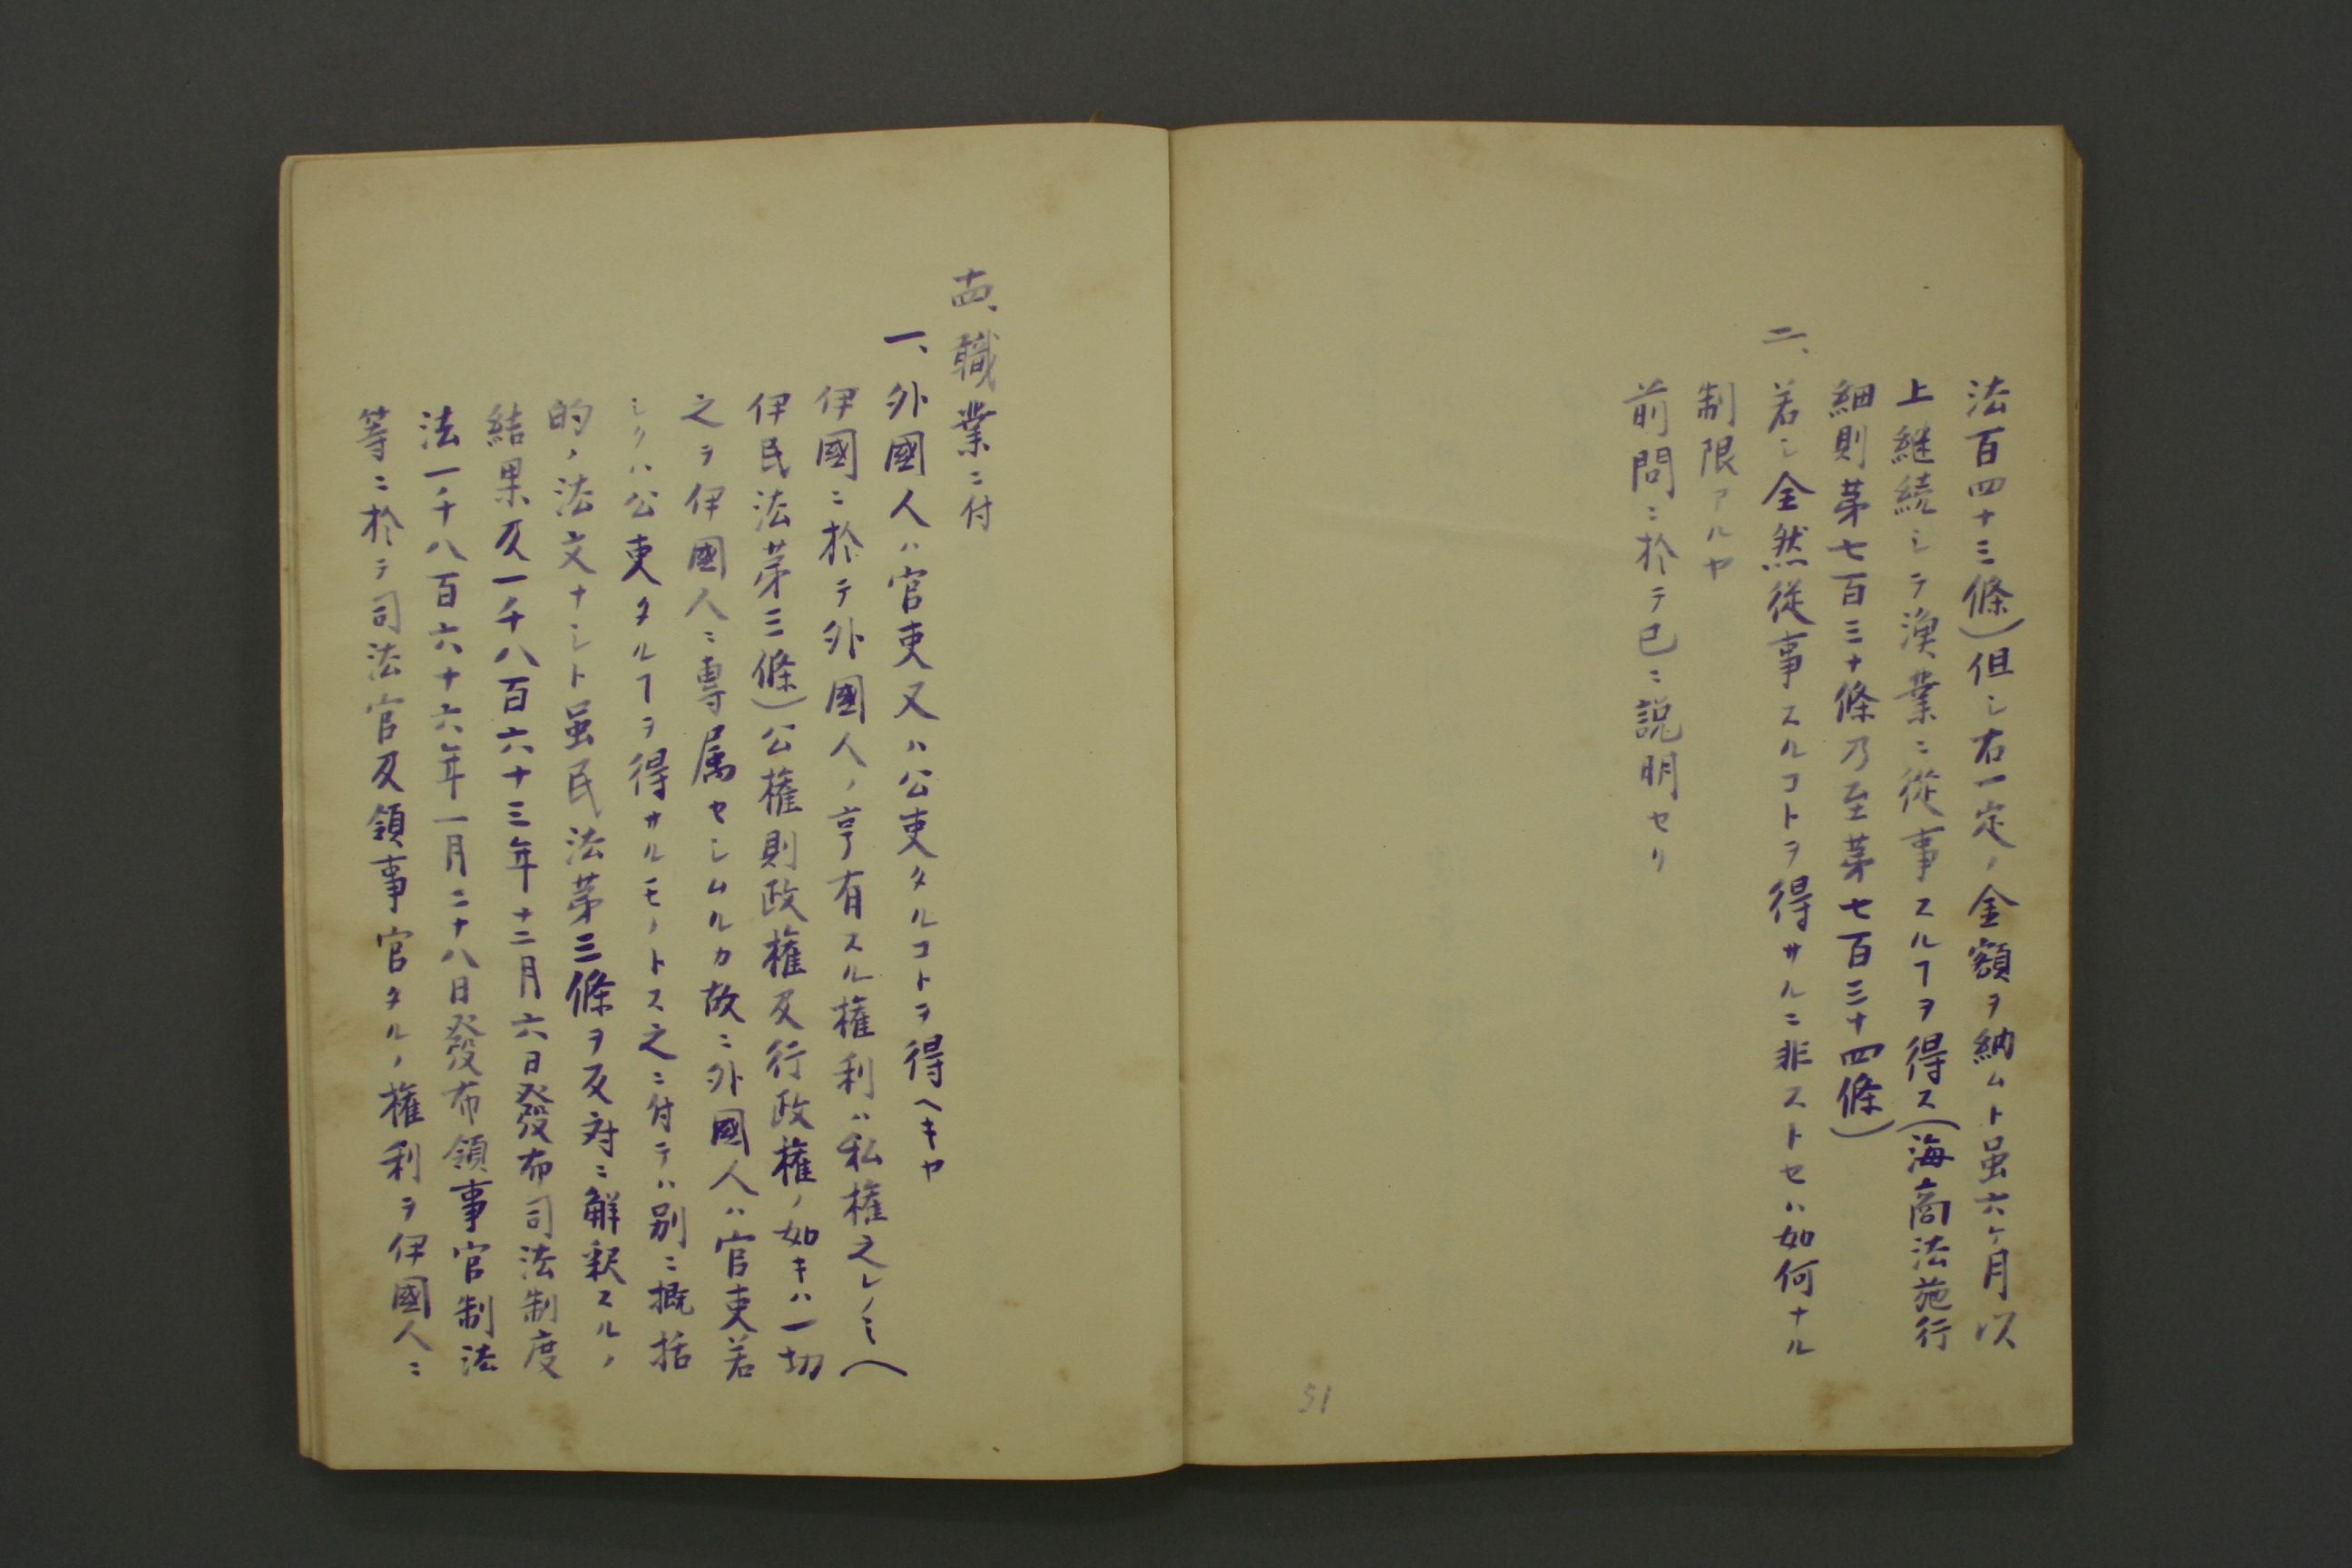 法百四十三條)但シ右一定ノ金額ヲ納ムト虽六ケ月以
上継続シテ漁業ニ従事スルヿヲ得ス(海商法施行
細則第七百三十條乃至第七百三十四條)
二、若シ全然従事スルコトヲ得サルニ非ストセハ如何ナル
制限アルヤ
前問ニ於テ已ニ説明セリ
51
十四、職業ニ付
一、外國人ハ官吏又ハ公吏タルコトヲ得ヘキヤ
伊國ニ於テ外國人ノ享有スル権利ハ私権之レノミ(
伊民法第三條)公権則政権及行政権ノ如キハ一切
之ヲ伊國人ニ専属セシムルカ故ニ外國人ハ官吏若
シクハ公吏タルヿヲ得サルモノトス之ニ付テハ別ニ概括
的ノ法文ナシト虽民法第三條ヲ反対ニ解釈スルノ
結果及一千八百六十三年十二月六日發布司法制度
法一千八百六十六年一月二十八日發布領事官制法
等ニ於テ司法官及領事官タルノ権利ヲ伊國人ニ